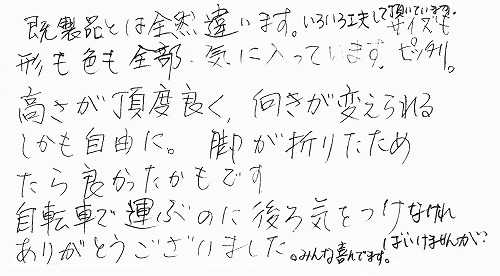 既製品とは全然違います。いろいろ工夫して頂いています。サイズも
形も色も全部、気に入っています。ピッタリ。
高さが頂度良く、向きが変えられる
しかも自由に。脚が折りたため
たら良かったかもです
自転車で運ぶのに後ろ気をつけなければいけませんが?
ありがとうございました。みんな喜んでます。